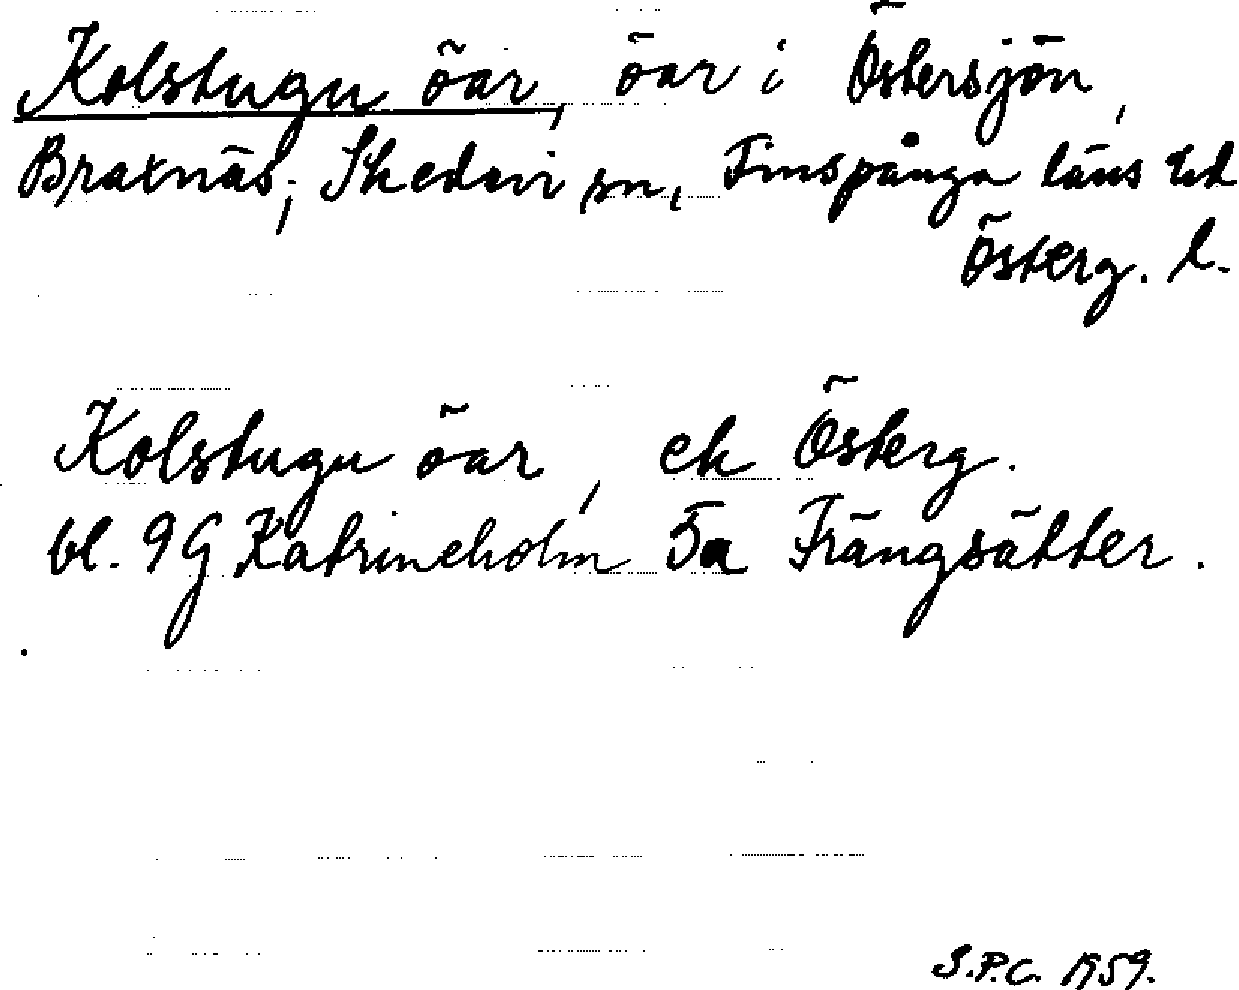 Kolstugu öar, öar i Östersjön,
Braxnäs, Skedevi sn, Finspånga läns hd
Österg. l.
Kolstugu öar, ek Österg.
bl. 9G Katrineholm 5a Frängsätter.
S.P.C. 1959.